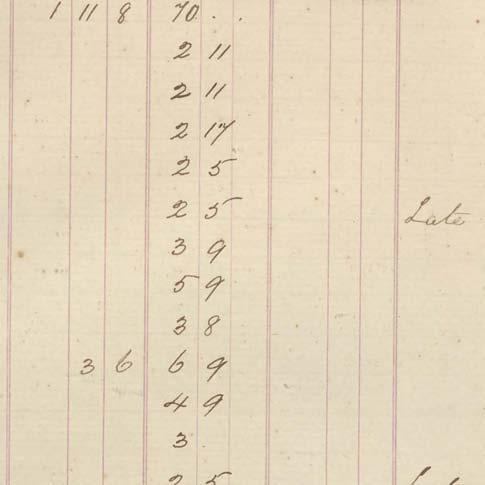 1 11 8 70 . .
2 11
2 11
2 17
2 5
2 5 Late
3 9
5 9
3 8
3 6 6 9
4 9
3 .
2 5